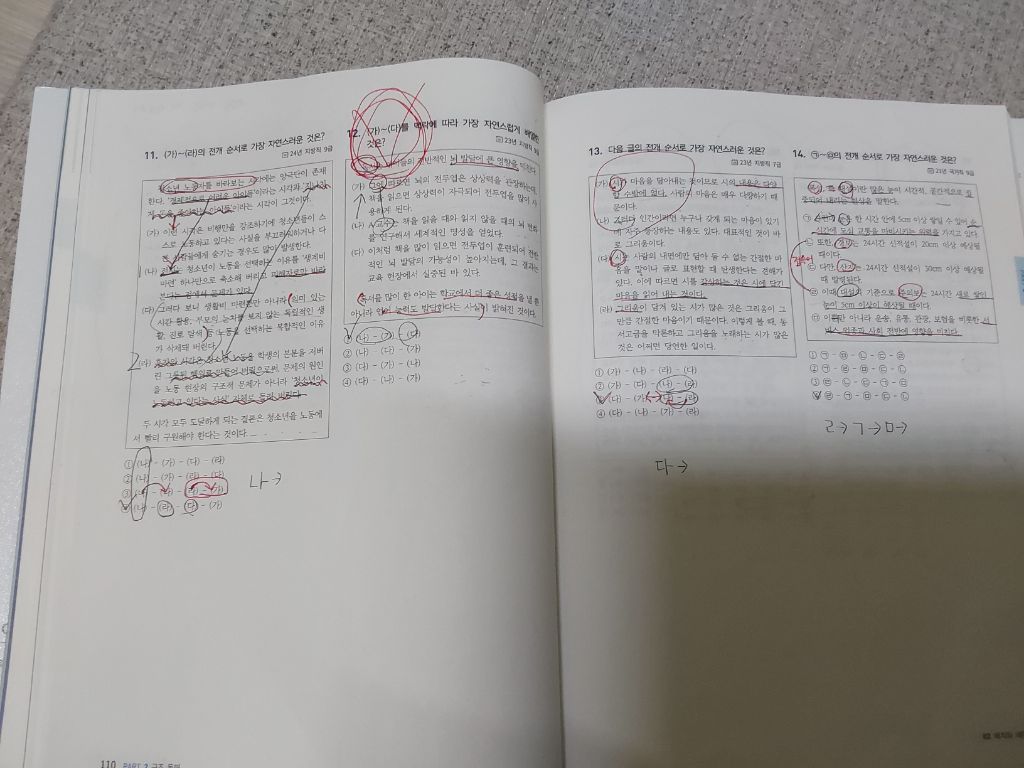 11. (가)~(라)의 전개 순서로 가장 자연스러운 것은?
24년 지방직 9급
청소년 노동자를 바라보는 시각에는 양극단이 존재
한다. '경제적으로 어려운 아이들'이라는 시각과
이라는 시각이 그것이다.
(가) 이런 시각은 비행만을 강조하기에 청소년들이 스
스로 노동하고 있다는 사실을 부끄러워하거나 다
른 사람들에게 숨기는 경우도 많이 발생한다.
(나) 전자는 청소년이 노동을 선택하는 이유를 '생계비
마련' 하나만으로 축소해 버리고 피해자로만 바라
본다는 점에서 문제가 있다.
(다) 그러다 보니 생활비 마련뿐만 아니라 의미 있는
시간 활용, 부모의 눈치를 보지 않는 독립적인 생
활, 진로 탐색 등 노동을 선택하는 복합적인 이유
가 삭제돼 버린다.
(라) 후자의 시각은 청소년 노동을 학생의 본분을 저버
린 그릇된 행위로 만들어 버림으로써 문제의 원인
을 노동 현장의 구조적 문제가 아니라 청소년이
노동하고 있다는 사실 자체로 돌려 버린다.
두 시각 모두 도달하게 되는 결론은 청소년을 노동에
서 빨리 구원해야 한다는 것이다.
① (나) - (가) - (다) - (라)
② (나) - (가) - (라) - (다)
③ (나) - (다) - (라) - (가)
④ (나) - (라) - (다) - (가)
나→
12. (가)~(다)를 맥락에 따라 가장 자연스럽게 배열한
것은?
23년 지방직 9급
아이들의 전반적인 뇌 발달에 큰 영향을 미친다.
(가) 그에 따르면 뇌의 전두엽은 상상력을 관장하는데,
책을 읽으면 상상력이 자극되어 전두엽을 많이 사
용하게 된다.
(나) A 교수는 책을 읽을 때와 읽지 않을 때의 뇌 변화
를 연구해서 세계적인 명성을 얻었다.
(다) 이처럼 책을 많이 읽으면 전두엽이 훈련되어 전반
적인 뇌 발달의 가능성이 높아지는데, 그 결과는
교육 현장에서 실증된 바 있다.
독서를 많이 한 아이는 학교에서 더 좋은 성적을 낼 뿐
아니라 언어 능력도 발달한다는 사실이 밝혀진 것이다.
① (나) - (가) - (다)
② (나) - (다) - (가)
③ (다) - (가) - (나)
④ (다) - (나) - (가)
110 PART 2 구조 독해
13. 다음 글의 전개 순서로 가장 자연스러운 것은?
23년 지방직 7급
(가) 시가 마음을 담아내는 것이므로 시의 내용은 다양
할 수밖에 없다. 사람의 마음은 매우 다양하기 때
문이다.
(나) 그러나 인간이라면 누구나 갖게 되는 마음이 있기
에 자주 등장하는 내용도 있다. 대표적인 것이 바
로 그리움이다.
(다) 시는 사람의 내면에만 담아 둘 수 없는 간절한 마
음을 말이나 글로 표현할 때 탄생한다는 견해가
있다. 이에 따르면 시를 감상하는 것은 시에 담긴
마음을 읽어 내는 것이다.
(라) 그리움이 담겨 있는 시가 많은 것은 그리움이 그
만큼 간절한 마음이기 때문이다. 이렇게 볼 때, 동
서고금을 막론하고 그리움을 노래하는 시가 많은
것은 어쩌면 당연한 일이다.
① (가) - (나) - (라) - (다)
③ (다) - (가) - (나) - (라)
④ (다) - (나) - (가) - (라)
다→
14. ㉠~㉤의 전개 순서로 가장 자연스러운 것은?
21년 국가직 9급
폭설, 즉 대설이란 많은 눈이 시간적, 공간적으로 집
중되어 내리는 현상을 말한다.
눈은 한 시간 안에 5cm 이상 쌓일 수 있어 순
식간에 도심 교통을 마비시키는 위력을 가지고 있다.
㉡ 또한, 경보는 24시간 신적설이 20cm 이상 예상될
때이다.
㉢ 다만, 산지는 24시간 신적설이 30cm 이상 예상될
때 발령된다.
㉣ 이때 대설의 기준으로 주의보는 24시간 새로 쌓인
눈이 5cm 이상이 예상될 때이다.
㉤ 이뿐만 아니라 운송, 유통, 관광, 보험을 비롯한 서
비스 업종과 사회 전반에 영향을 미친다.
① ㉠ - ㉤ - ㉡ - ㉢ - ㉣
② ㉠ - ㉣ - ㉤ - ㉢ - ㉡
③ ㉣ - ㉡ - ㉢ - ㉠ - ㉤
ㄹ→ㄱ→ㅁ→